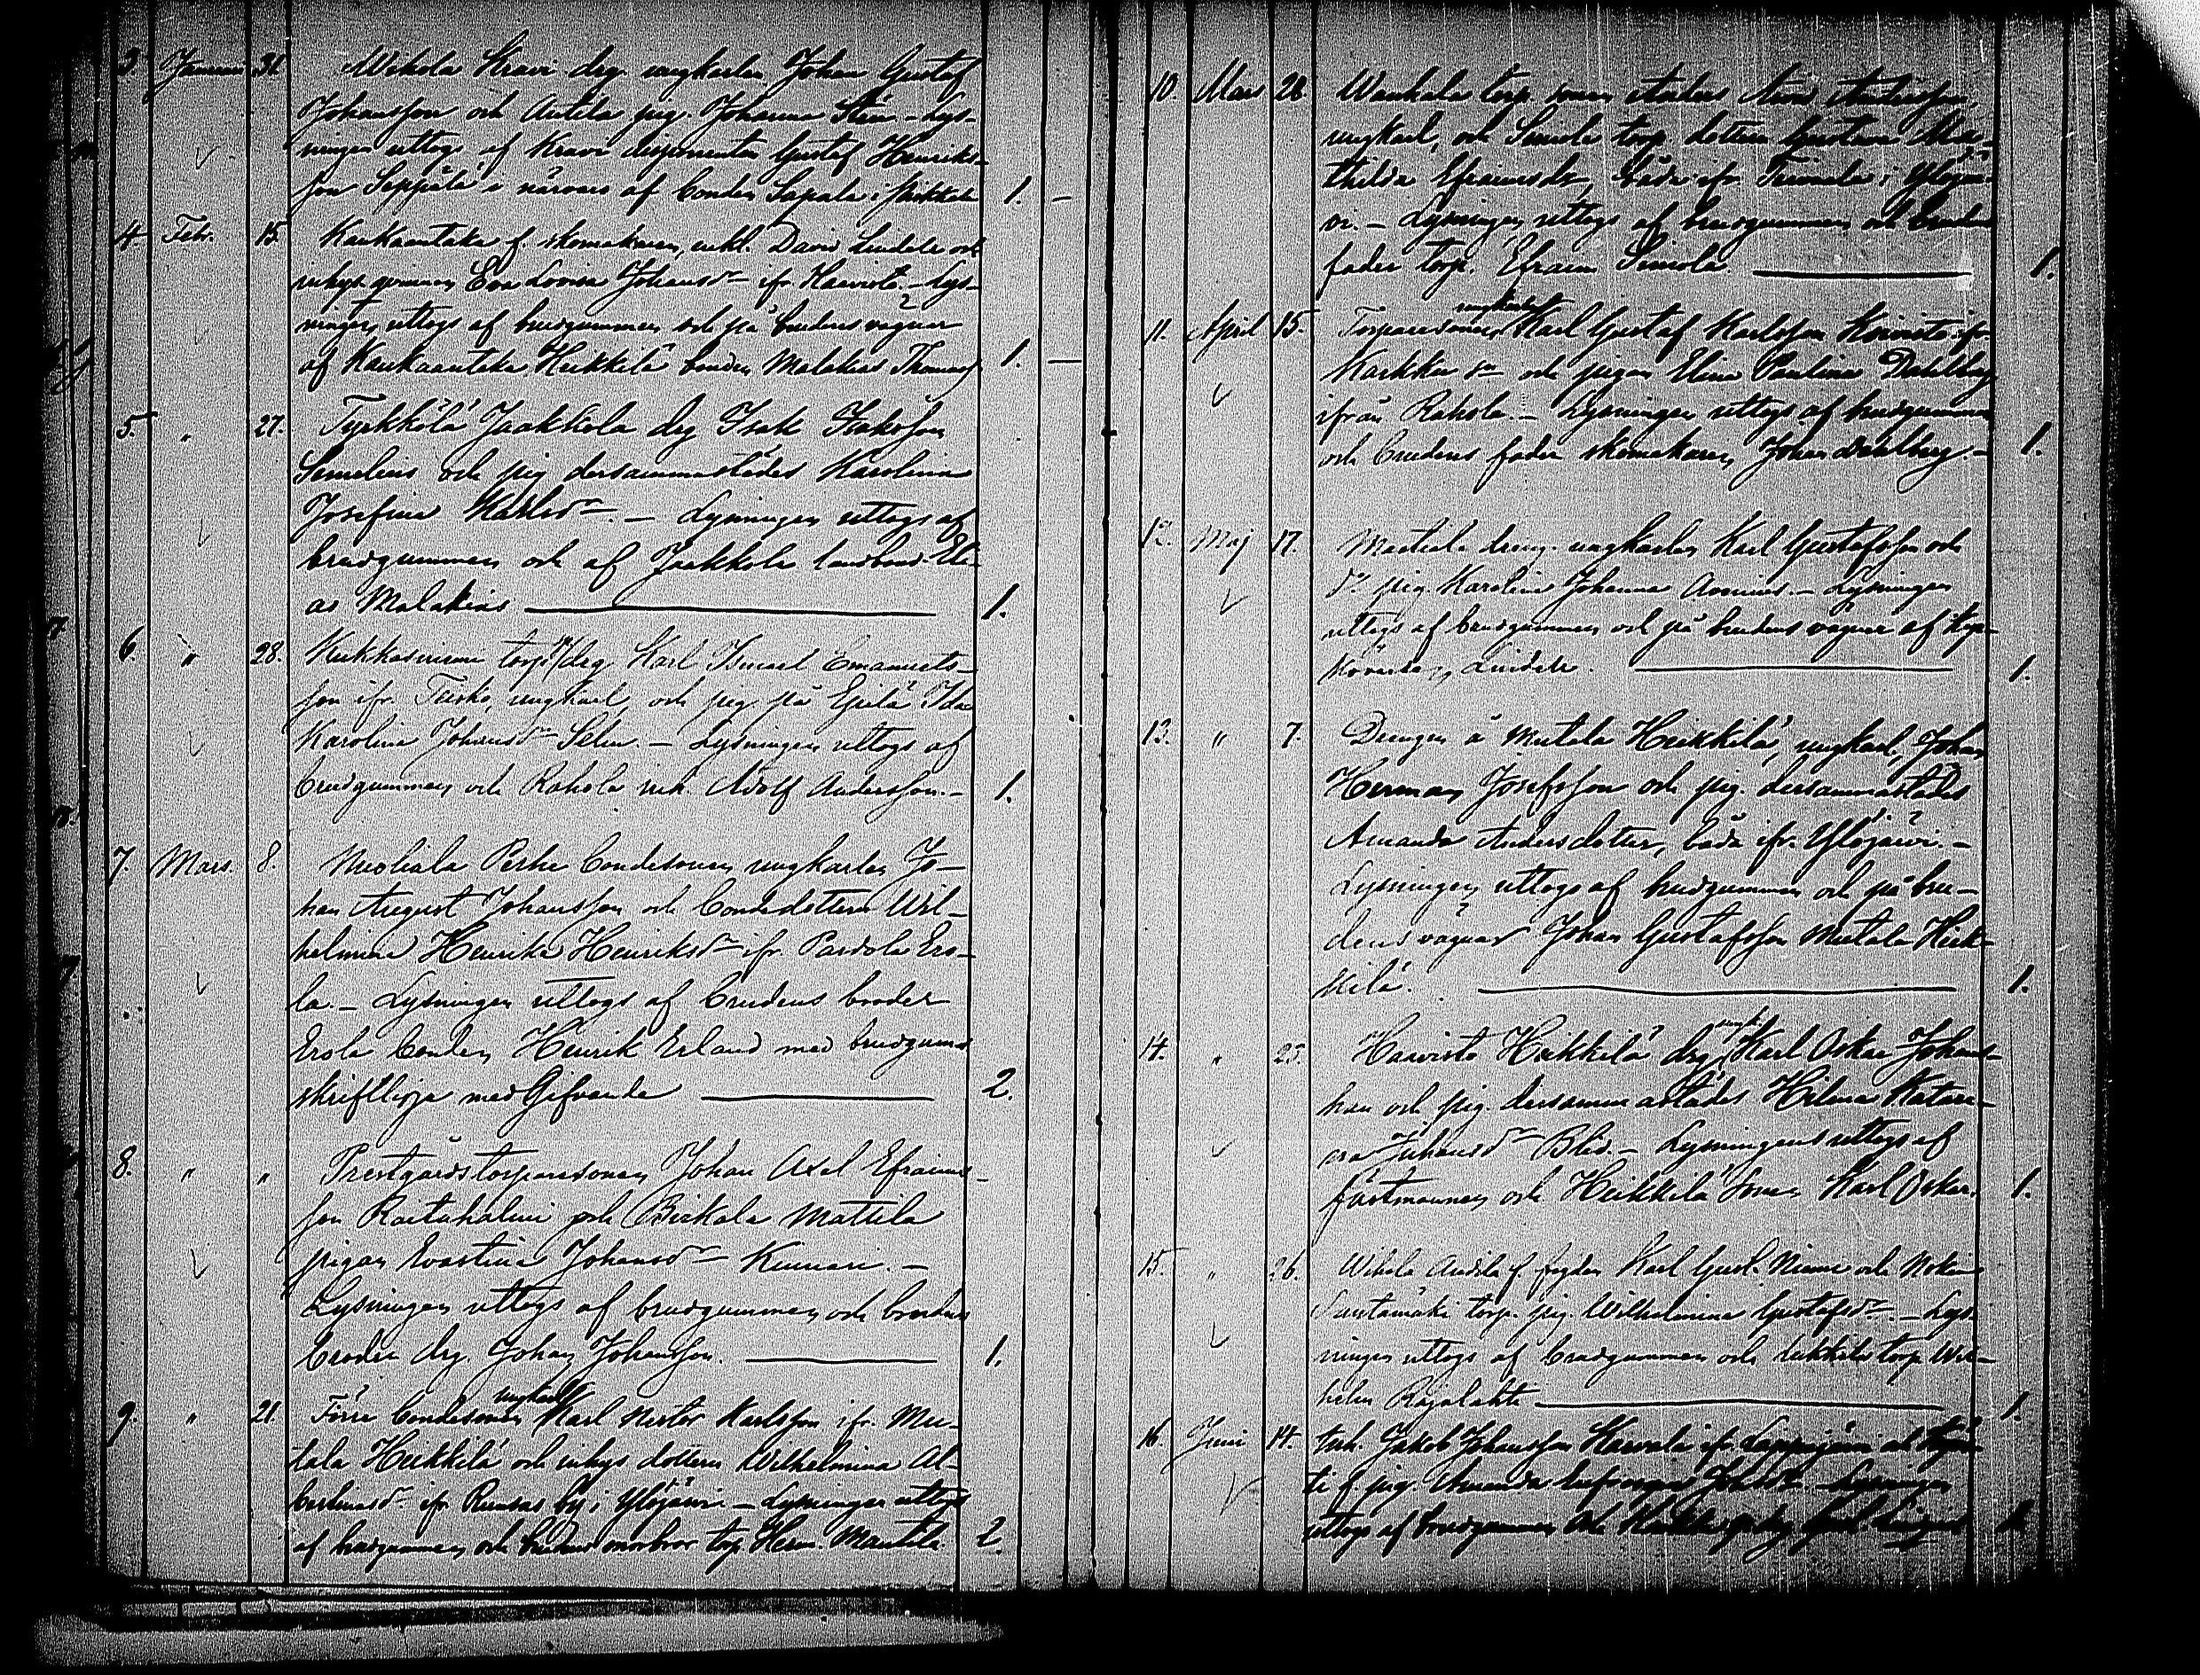 3. Januari 31. Wihola Kravi drg. ungkarlen Johan Gustaf
Johansson och Antila pig. Johanna Stén. – Lys-
ningen uttogs af Kravi disponenten Gustaf Henriks-
son Seppälä i närvaro af bonden Sapala i 1. –
4. Febr. 15. Kaukaantaka f. skomakaren, enkl. David Lindell och
inhys qvinnan Eva Lovisa Johansdr ifr. Haavisto. – Lys-
ningen uttogs af brudgummen och på brudens vägnar
af Kaukaantaka Heikkilä bonden Malakias Thomass. 1. –
5. " 27. Tyrkkölä Jaakkola drg Isak Isaksson
Smelius och pig dersammastädes Karolina
Josefina Karlsdr. – Lysningen uttogs af
brudgummen och af Jaakkola landbond. Eli-
as Malakias 1.
6. " 28. torps drg Karl Ismael Emanuels-
son ifr. ungkarl, och pig på Epilä Ida
Karolina Johansdr Selin. – Lysningen uttogs af
brudgummen och Rahola inh. Adolf Andersson. – 1.
7. Mars. 8. Nuoliala Perhe bondesonen, ungkarlen Jo-
han August Johansson och bondedottern Wil-
helmina Henrika Henriksdr ifr. Partola Ero-
la. – Lysningen uttogs af brudens broder
Erola bonden Henrik Erland med brudgums
skriftliga medgifvande 2.
8. " " Prestgårdstorparesonen Johan Axel Efraims-
son Raitahalme och Birkala Mattila
pigan Evastina Johansdr Kinnari. –
Lysningen uttogs af brudgummen och brudens
broder drg. Johan Johansson. 1.
9. " 21. Förre bondesonen ungkarl Karl Nestor Karlsson ifr. Mu-
tala Heikkilä och inhys dottern Wilhelmina Al-
bertinasdr ifr Runsas by i Ylöjärvi – Lysningen uttogs
af brudgummen och brudens morbror torp Herm. Mantila. 2.
10. Mars 28 torp. sonen Anders Andersson,
ungkarl, och Simola torp. dottern Gustava Ma-
thilda Efraimsdr, båda ifr. i Ylöjär-
vi. – Lysningen uttogs af brudgummen och brudens
fader torp. Efraim Simola. 1.
11. April 15. Torparesonen, ungkarlen Karl Gustaf Karlsson Koivisto ifr.
Karkku sn och pigan Elina Paulina Dahlberg
ifrån Rahola. – Lysningen uttogs af brudgummen
och brudens fader skomakaren Johan Dahlberg – 1.
12. Maj 17. dreng. ungkarlen Karl Gustafsson och
do pig. Karolina Johanna – Lysningen
uttogs af brudgummen och på brudens vägnar af
Lindell. 1.
13. " 7. Drengen å Mutala Heikkilä, ungkarl, Johan
Herman Josefsson och pig. dersammastädes
Amanda Andersdotter, båda ifr. Ylöjärvi. –
Lysningen uttogs af brudgummen och på bru-
dens vägnar Johan Gustafsson Mutala Heik-
kilä. 1.
14. " 25. Haavisto Heikkilä drg ungk. Karl Oskar Johans-
han och pig. dersammastädes Hilma Katari-
na Juhansdr – Lysningen uttogs af
fästmannen och Heikkilä sonen Karl Oskar. 1.
15. " 26. Wihola f. fogden Karl Gust. Niemi och Nokia
torp. pig. Wilhelmina Gustafsdr. – Lys-
ningen uttogs af brudgummen och torp. Wil-
helm Rajalahti 1.
16. Juni 14. Inh. Jakob Johansson ifr. Lappajärvi och
f. pig. Amanda Johansdr – Lysningen
uttogs af brudgummen och drg